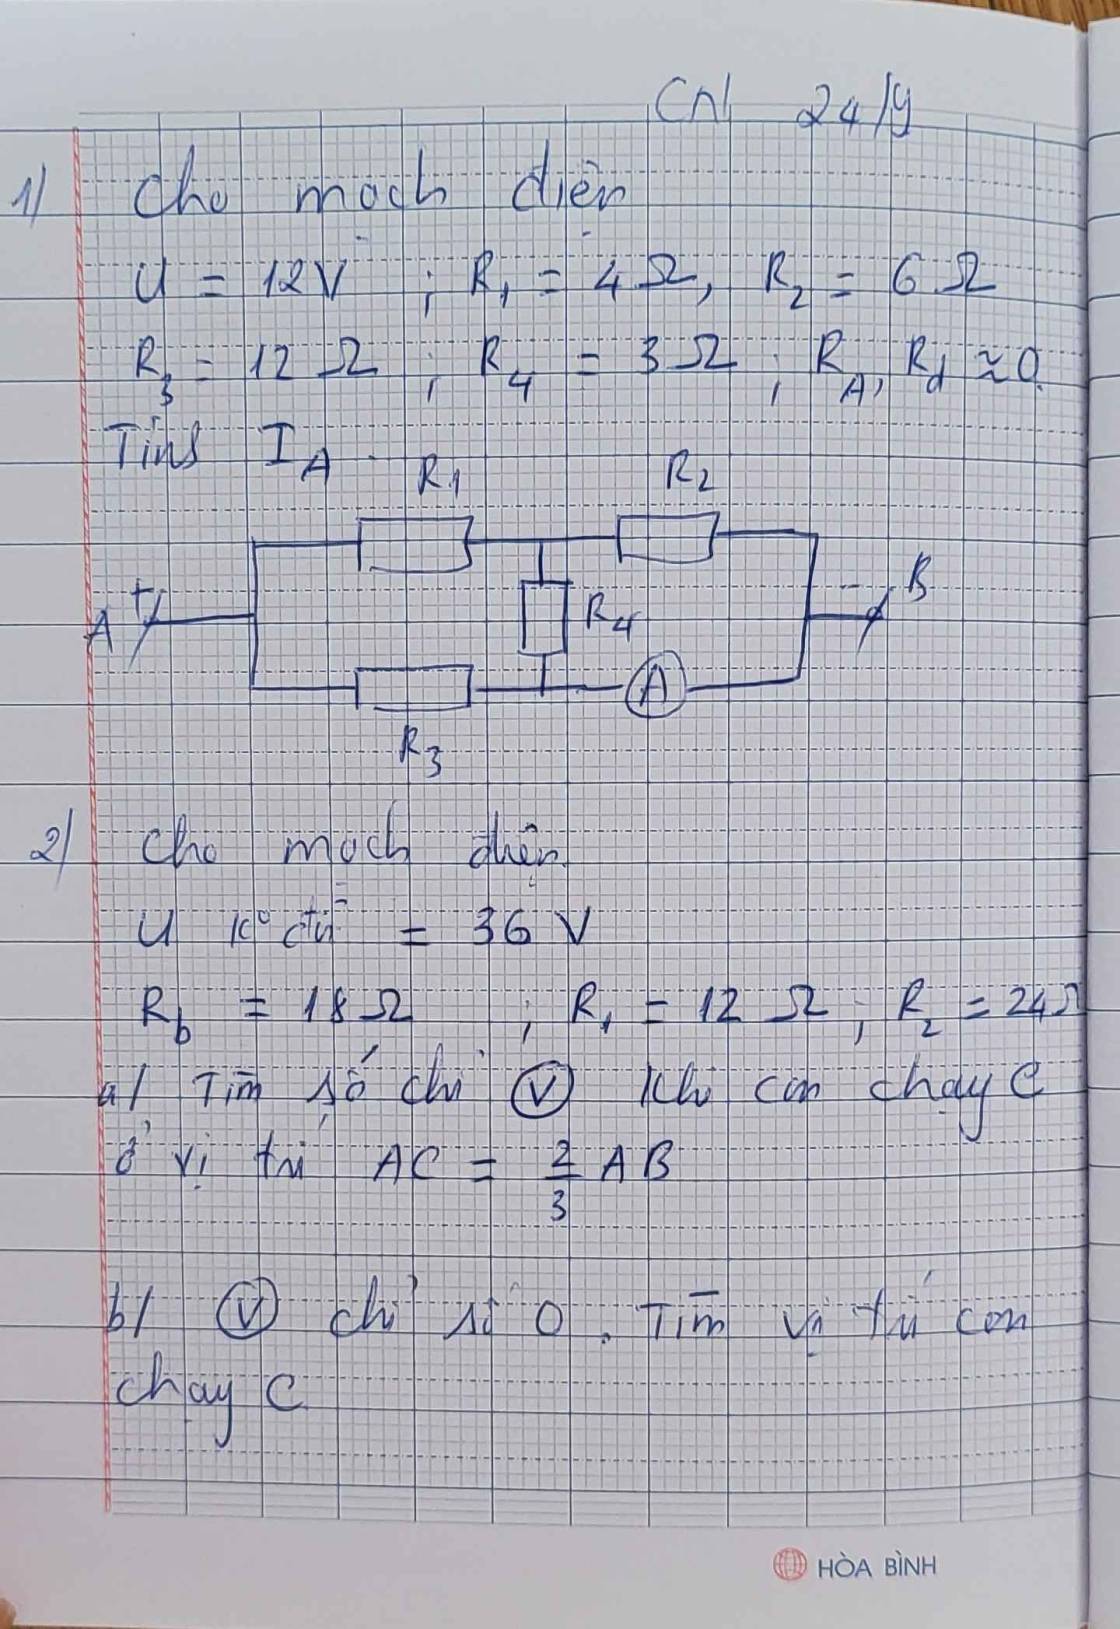 CN 24/9
1) Cho mạch điện
U = 12V ; R₁ = 4Ω, R₂ = 6Ω
R₃ = 12Ω ; R₄ = 3Ω ; R_A, R_d ≈ 0.
Tính I_A.
R₁ R₂
A + R₄ − B
A
R₃
2) Cho mạch điện.
U kº đổi = 36 V
R_b = 18Ω ; R₁ = 12Ω ; R₂ = 24Ω
a) Tìm số chỉ (V) khi con chạy C
ở vị trí AC = 2/3 AB
b) (V) chỉ số 0. Tìm vị trí con
chạy C
HÒA BÌNH